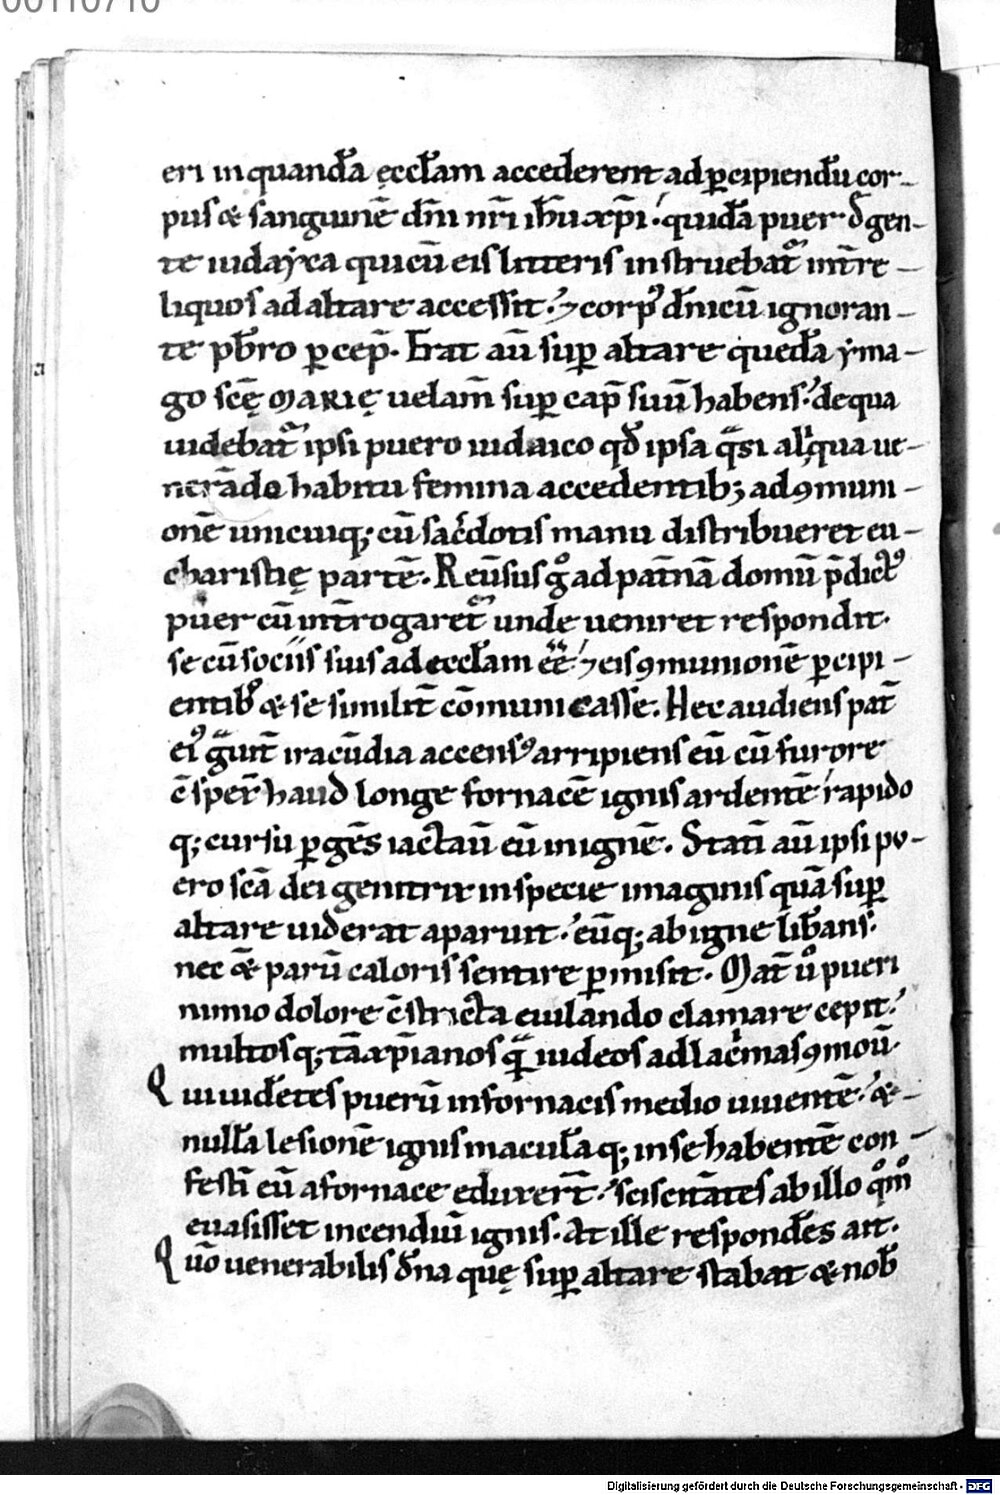 00110710
eri in quandā ęccl̄am accederent ad p̱cipiendū cor-
pus & sanguinē dn̄i nr̄i ih̄u xp̄i. quidā puer d̄ gen-
te iudayca qui cū eis litteris instruebat᷑ int̄ re-
liquos ad altare accessit. ⁊ corp᷒ dn̄icū ignoran-
te pb̄ro p̱cep̄. Erat aū sup̱ altare quedā yma-
go scę̄ MARIĘ uelam̄ sup̱ cap̄ suū habens. de qua
uidebat᷑ ipsi puero iudaico qd̄ ipsa qͣsi aliqua ue-
nerādo habitu femina accedentib; ad ꝯmuni-
onē unicuiq; cū sac̄dotis manu distribueret eu-
charistię partē. Reūsus gͦ ad pat̄nā domū p̄dict᷒
puer cū int̄rogaret᷑ unde ueniret respondit.
se cū sociis suis ad eccl̄am eē̄. ⁊ eis ꝯmunionē p̱cipi-
entib᷒ & se similit̄ cōmunicasse. Hec audiens pat̄
ei᷒ gͣuit̄ iracūdia accens᷒ arripiens eū cū furore
c̄sper̄ haud longe fornacē ignis ardentē rapido
q; cursu p̱gēs iactaū eū in ignē. Statī aū ipsi pu-
ero scā dei genitrix in specie imaginis quā sup̱
altare uiderat aparuit. eūq; ab igne lib̄ans.
nec & parū caloris sentire p̱misit. Mat̄ uͦ pueri
nimio dolore c̄stricta eiulando clamare cepit.
multosq; tā xp̄ianos qͣ̄ iudeos ad lac̄mas ꝯmoū.
Qui uidētes puerū in fornacis medio uiuentē. &
nullā lesionē ignis maculāq; in se habentē con-
festī eū a fornace eduxer̄t. sciscitātes ab illo qͦmͦ
euasisset incendiū ignis. At ille respondēs ait.
Quō uenerabilis dn̄a quę sup̱ altare stabat & nob̄
Digitalisierung gefördert durch die Deutsche Forschungsgemeinschaft - DFG